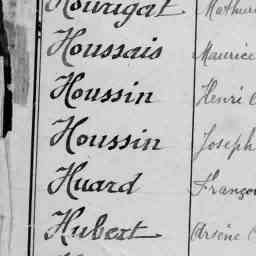 Hourigat Mathuri
Houssais Maurice
Houssin Henri
Houssin Joseph
Huard Françoi
Hubert Arsène